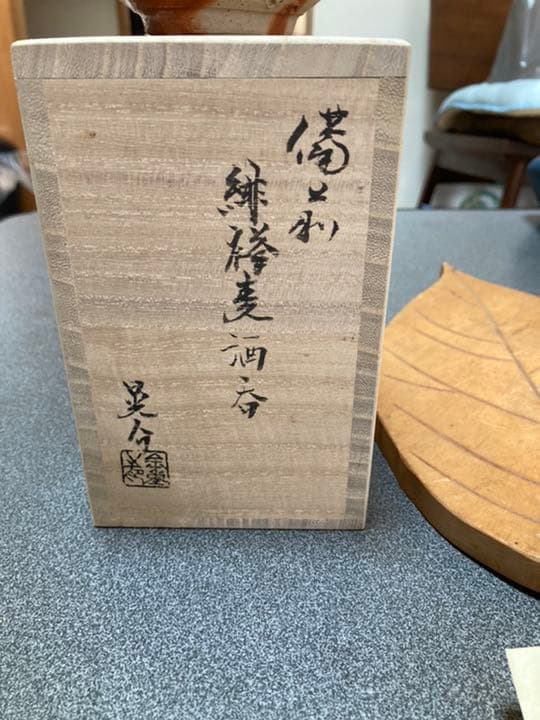 備前
緋襷麦酒呑
晃介